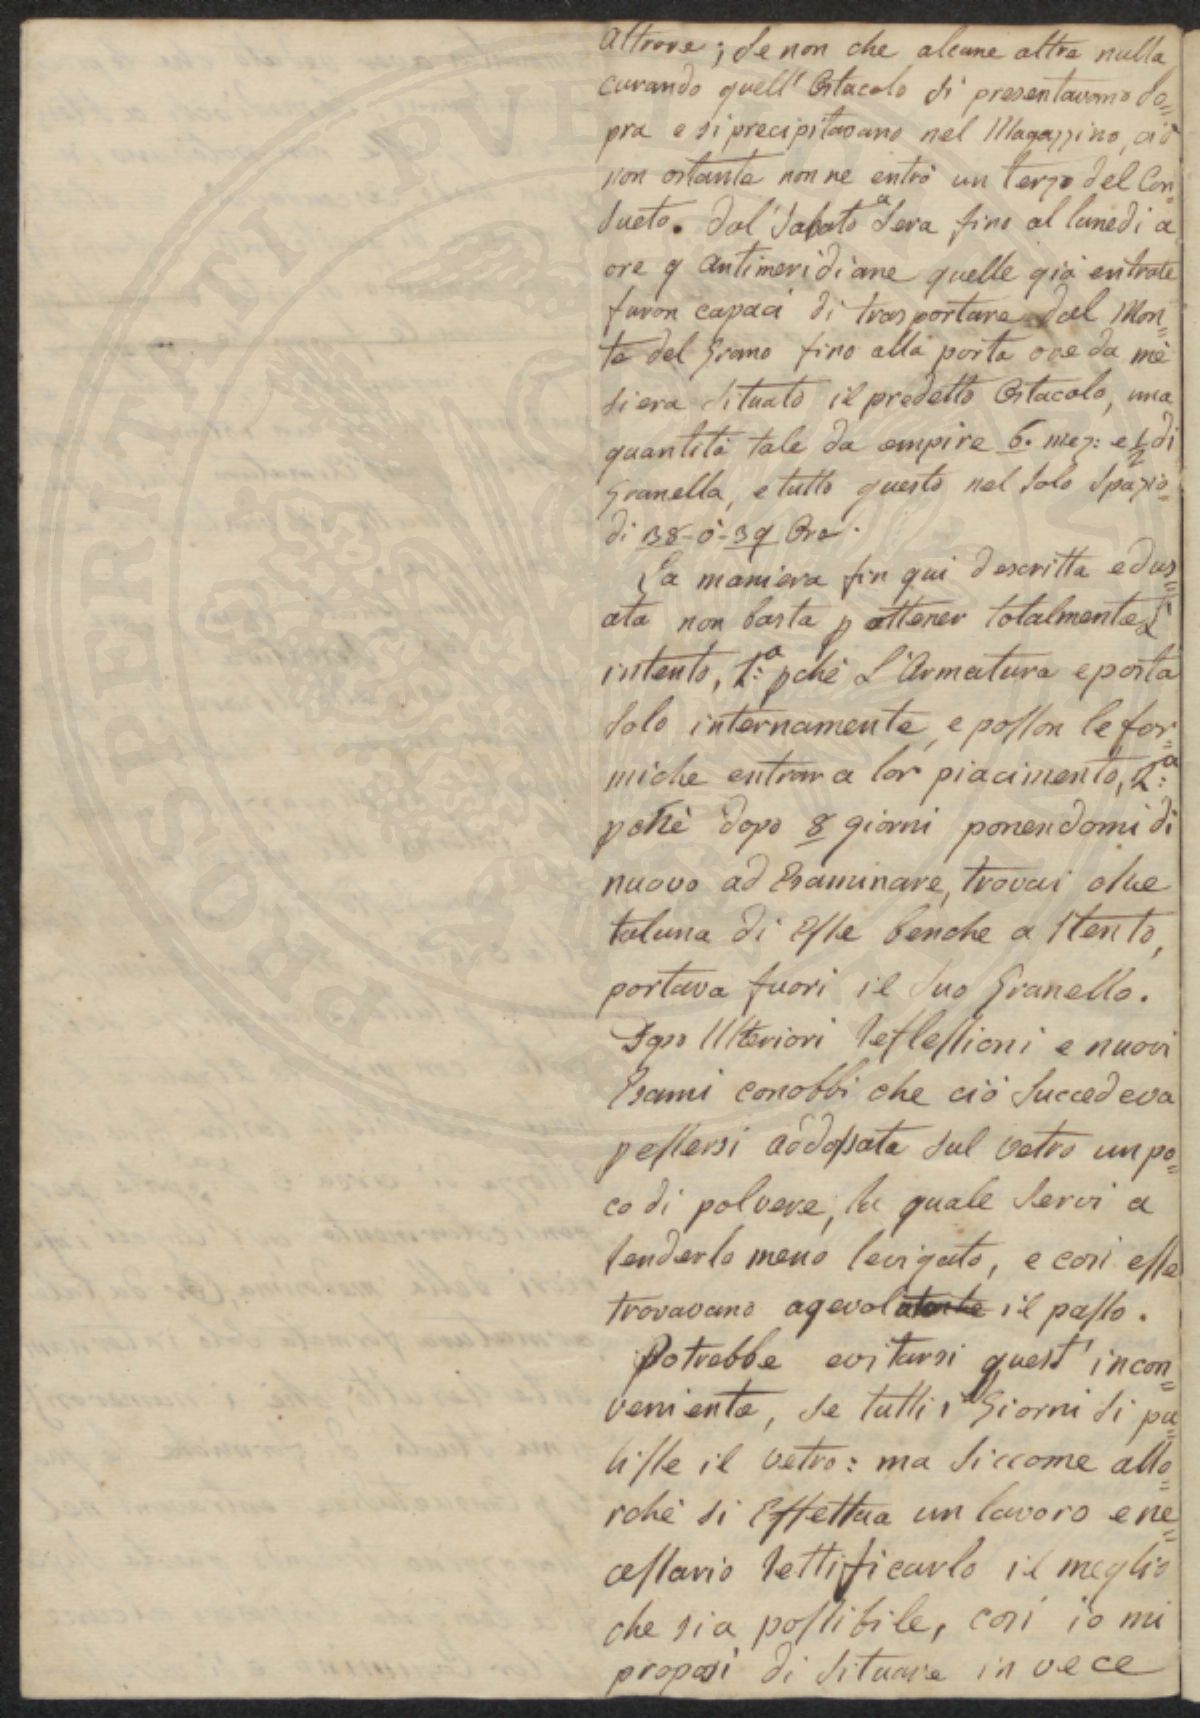 altrove; se non che alcune altre nulla
curando quell' Ostacolo si presentavano so=
pra e si precipitavano nel Magazzino, ciò
non ostante non ne entrò un terzo del Con=
sueto. Dal Sabato a Sera fino al lunedi a
ore 9 antimeridiane quelle già entrate
furon capaci di trasportare dal Mon=
te del Grano fino alla porta ove da mè
si era situato il predetto Ostacolo, una
quantità tale da empire 6. mez: e 1/2 di
Granella, e tutto questo nel solo spazio
di 38-ò-39 Ore.
La maniera fin qui descritta ed us=
ata non basta p ottener totalmente l'
intento, 1:a pchè L'Armatura e posta
solo internamente, e posson le for=
miche entrar a lor piacimento, 2:a
pchè dopo 8 giorni ponendomi di
nuovo ad Esaminare, trovai che
taluna di Esse benche a stento,
portava fuori il suo Granello.
Dopo Ulteriori reflessioni e nuovi
Esami conobbi che ciò succedeva
p essersi addossata sul vetro un po=
co di polvere, la quale servi a
renderlo meno levigato, e cosi esse
trovavano agevolatente il passo.
Potrebbe evitarsi quest' incon=
veniente, se tutti i Giorni si pu=
lisse il vetro: ma siccome allo=
rchè si Effettua un lavoro e ne=
cessario rettificarlo il meglio
che sia possibile, cosi io mi
proposi di situare in vece